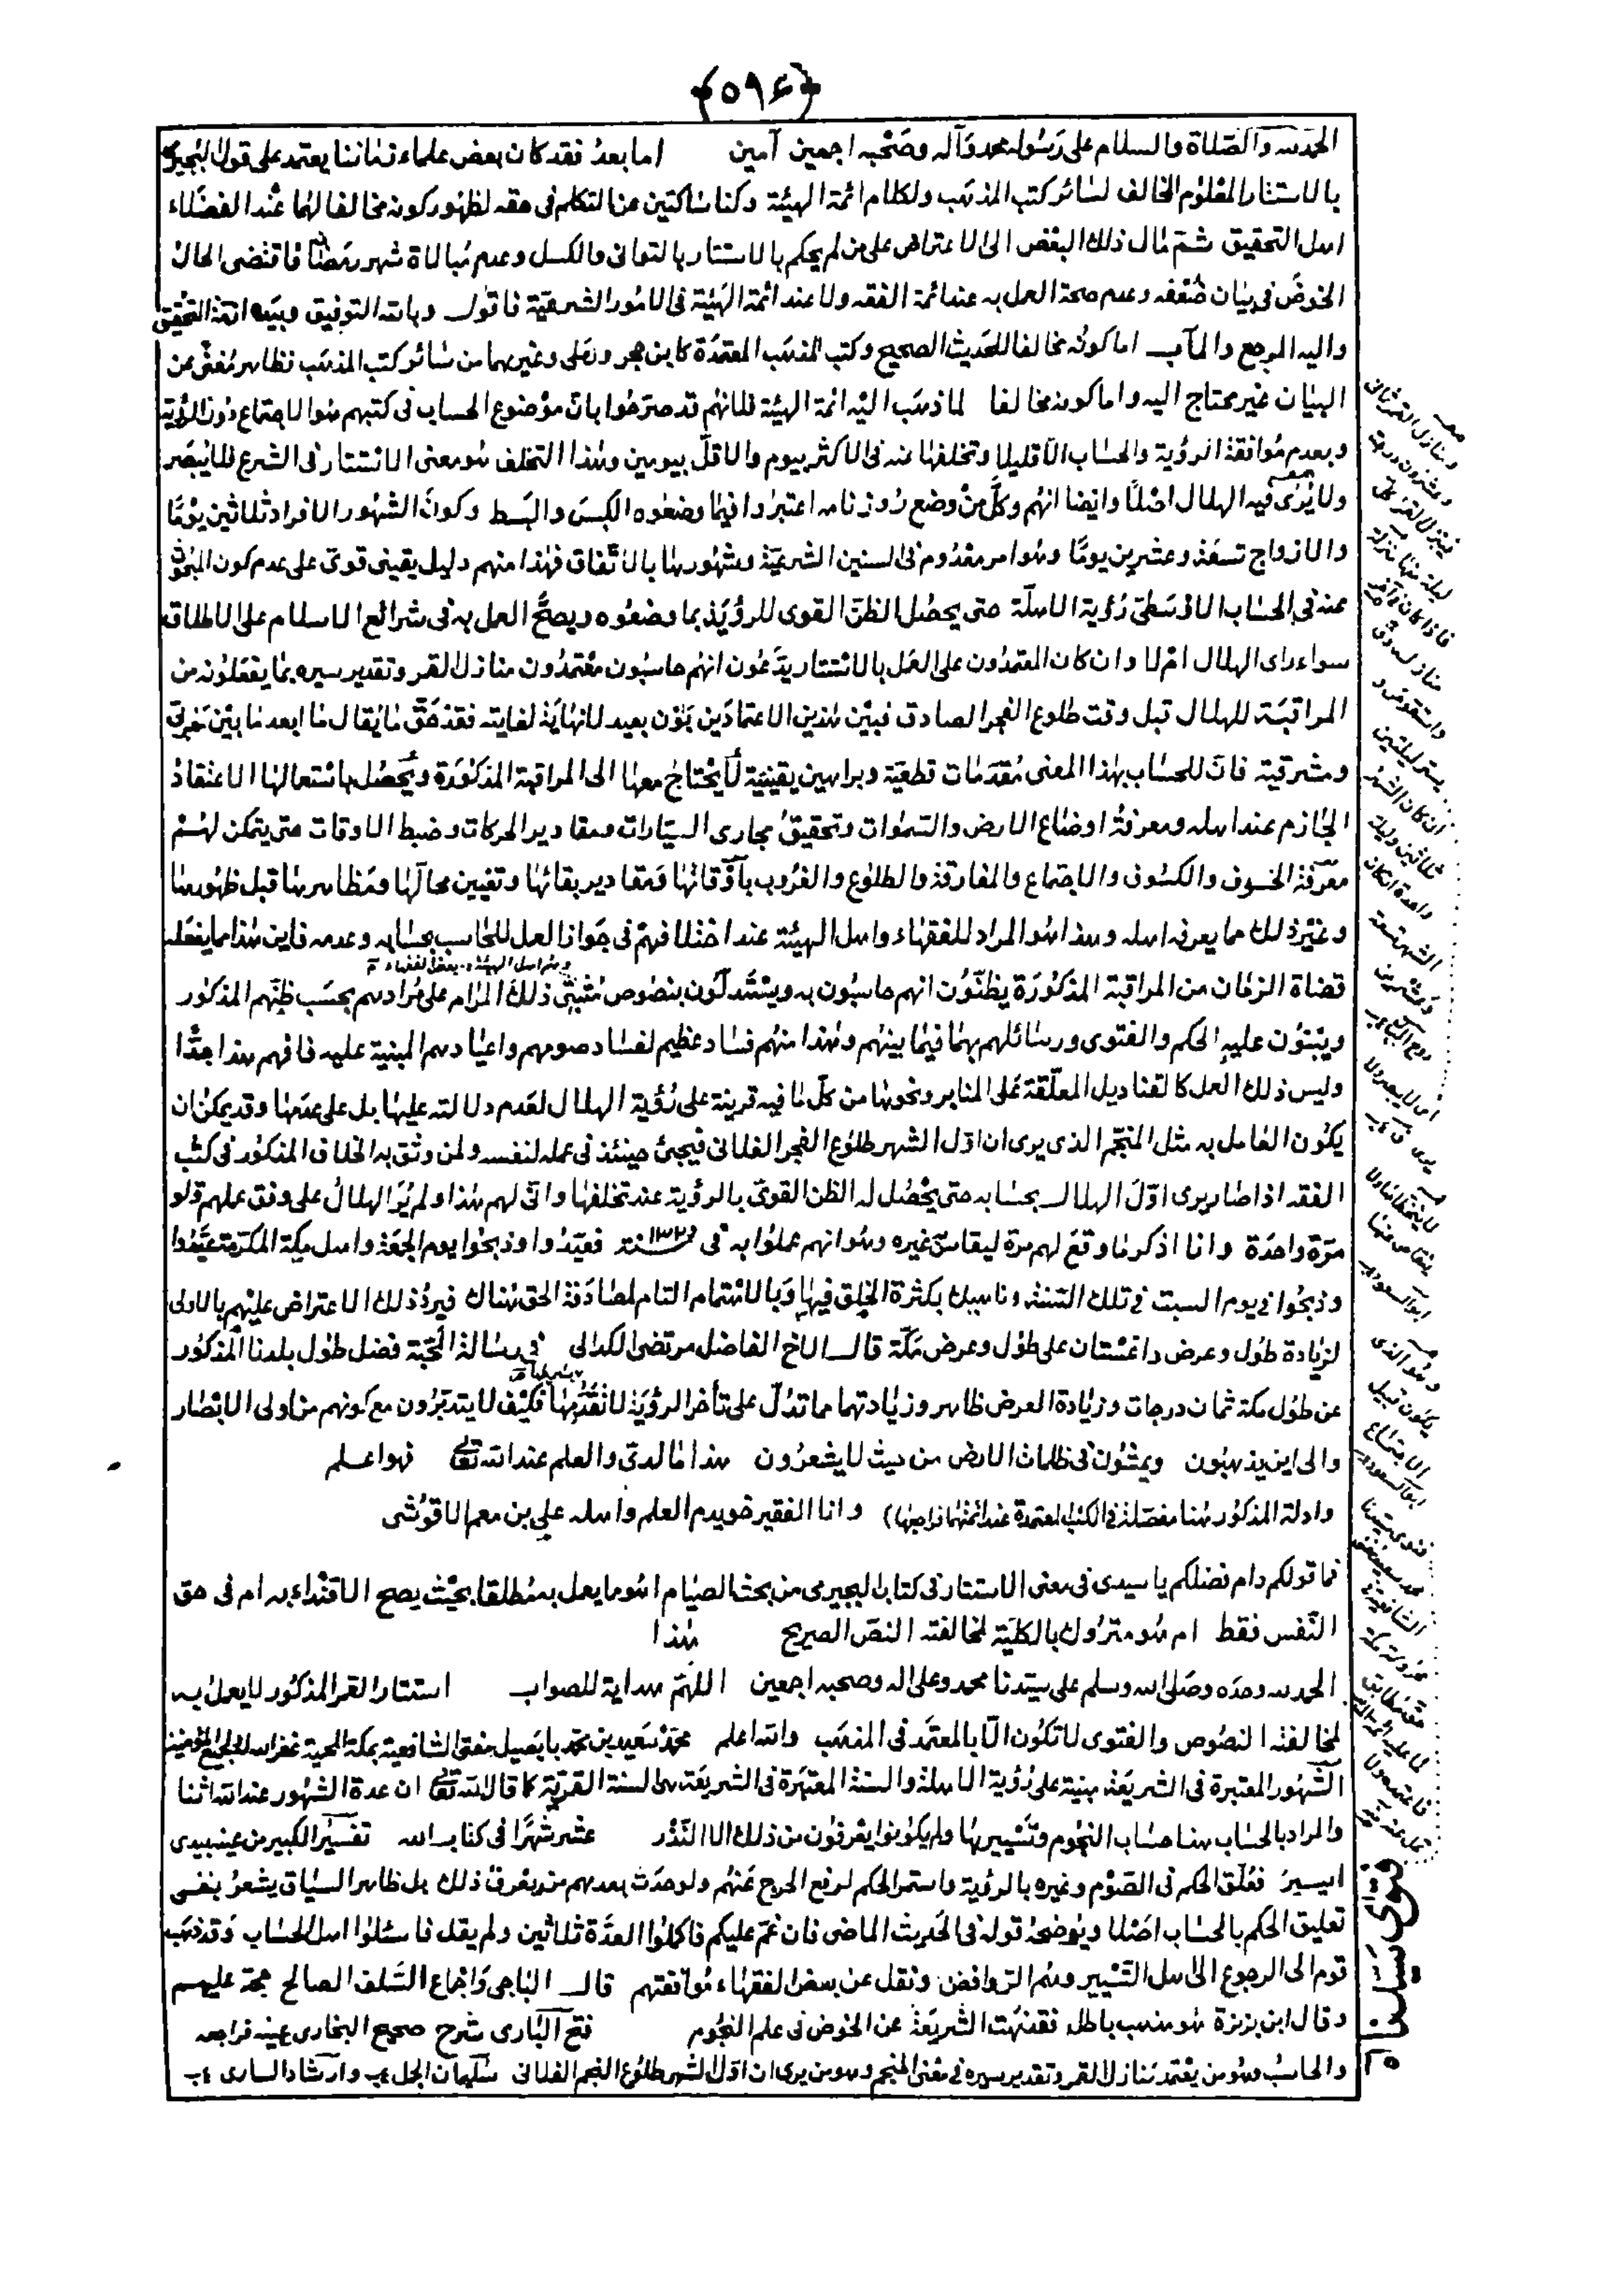 ﴿٥٩٤﴾
الحمد لله والصلاة والسلام على رسوله محمد وآله وصحبه اجمعين آمين اما بعد فقد كان بعض علماء زماننا يعتمد على قول البجيرمي
بالاستتار المعلوم المخالف لسائر كتب المذهب ولكلام ائمة الهيئة وكنا ساكتين عن التكلم فى حقه لظهور كونه مخالفا لهما عند الفضلاء
اهل التحقيق ثم مال ذلك البعض الى الاعتراض على من لم يحكم بالاستتار بالتوانى والكسل وعدم مبالاة شهر رمضان فاقتضى الحال
الخوض فى بيان ضعفه وعدم صحة العمل به عند ائمة الفقه ولا عند ائمة الهيئة فى الامور الشرعية فاقول وبالله التوفيق وبيده ازمة التحقيق
واليه المرجع والمآب اما كونه مخالفا للحديث الصحيح وكتب المذهب المعتمدة كابن حجر ومحلى وغيرهما من سائر كتب المذهب فظاهر مغنى عن
البيان غير محتاج اليه واما كونه مخالفا لما ذهب اليه ائمة الهيئة فلانهم قد صرحوا بان موضوع الحساب فى كتبهم هو الاجتماع دون الرؤية
وبعدم موافقة الرؤية والحساب الا قليلا وتخلفها عنه فى الاكثر بيوم والاقل بيومين وهذا التخلف هو معنى الاستتار فى الشرع فلا يبصر
ولا يرى فيه الهلال اصلا وايضا انهم وكل من وضع روزنامه اعتبروا فيما وضعوه الكبس والبسط وكون الشهور الافراد ثلاثين يوما
والازواج تسعة وعشرين يوما وهو امر معدوم فى السنين الشرعية وشهورها بالاتفاق فهذا منهم دليل يقينى قوى على عدم كون المبحوث
عنه فى الحساب الاوسطى رؤية الاهلة حتى يحصل الظن القوى للرؤية بما وضعوه ويصح العمل به فى شرائع الاسلام على الاطلاق
سواء راى الهلال ام لا وان كان المعتمدون على العمل بالاستتار يدعون انهم حاسبون معتمدون منازل القمر وتقدير سيره بما يفعلونه من
المراقبة للهلال قبل وقت طلوع الفجر الصادق فبين هذين الاعتمادين بون بعيد لا نهاية لغايته فقد حق ما يقال ما ابعد ما بين مغربى
ومشرقية فان للحساب بهذا المعنى مقدمات قطعية وبراهين يقينية لا يحتاج معها الى المراقبة المذكورة ويحصل باستعمالها الاعتقاد
الجازم عند اهله ومعرفة اوضاع الارض والسموات وتحقيق مجارى السيارات ومقادير الحركات وضبط الاوقات حتى يتمكن لهم
معرفة الخسوف والكسوف والاجتماع والمفارقة والطلوع والغروب باوقاتها ومقادير بقائها وتعيين محالها ومظاهرها قبل ظهورها
وغير ذلك مما يعرفه اهله وهذا هو المراد للفقهاء واهل الهيئة عند اختلافهم فى جواز العمل للحاسب بحسابه وعدمه فاين هذا مما يفعله
قضاة الزمان من المراقبة المذكورة يظنون انهم حاسبون به ويستدلون بنصوص مثبتى ذلك المرام على مرادهم بحسب ظنهم المذكور
ويبنون عليه الحكم والفتوى ورسائلهم بهما فيما بينهم وهذا منهم فساد عظيم لفساد صومهم واعيادهم المبنية عليه فافهم هذا جدا
وليس ذلك العمل كالقناديل المعلقة على المنابر ونحوها من كل ما فيه قرينة على رؤية الهلال لعدم دلالته عليها بل على عدمها وقد يمكن ان
يكون العامل به مثل المنجم الذى يرى ان اول الشهر طلوع الفجر الفلانى فيجئ حينئذ فى عمله لنفسه ولمن وثق به الخلاف المذكور فى كتب
الفقه اذا صار يرى اول الهلال بحسابه حتى يحصل له الظن القوى بالرؤية عند تخلفها وانى لهم هذا ولم ير الهلال على وفق علمهم ولو
مرة واحدة وانا اذكر ما وقع لهم مرة ليقاس غيره وهو انهم عملوا به فى سنة فعيدوا وذبحوا يوم الجمعة واهل مكة المكرمة عيدوا
وذبحوا فى يوم السبت فى تلك السنة وناهيك بكثرة الخلق فيها وبالاهتمام التام لمصادفة الحق هناك فيرد ذلك الاعتراض عليهم بالاولى
لزيادة طول وعرض داغستان على طول وعرض مكة قال الاخ الفاضل مرتضى الكدالى فى رسالة الحبة فضل طول بلدنا المذكور
عن طول مكة ثمان درجات وزيادة العرض ظاهر وزيادتهما مما تدل على تأخر الرؤية لا تقدمها فكيف لا يتدبرون مع كونهم من اولى الابصار
والى اين يذهبون ويمشون فى ظلمات الارض من حيث لا يشعرون هذا ما لدى والعلم عند الله تعالى فهو اعلم
وادلة المذكور هنا مفصلة فى الكتب المعتمدة عند ائمتها فراجعها) وانا الفقير خويدم العلم واهله على بن معم الاقوشى
فما قولكم دام فضلكم يا سيدى فى معنى الاستتار فى كتاب البجيرمى من بحث الصيام اهو ما يعمل به مطلقا بحيث يصح الاقتداء به ام فى حق
النفس فقط ام هو متروك بالكلية لمخالفته النص الصريح هذا
الحمد لله وحده وصلى الله وسلم على سيدنا محمد وعلى اله وصحبه اجمعين اللهم هداية للصواب استتار القمر المذكور لا يعمل به
لمخالفة النصوص والفتوى لا تكون الا بالمعتمد فى المذهب والله اعلم محمد سعيد بن محمد بابصيل مفتى الشافعية بمكة المحمية غفر الله له ولجميع المؤمنين
الشهور المعتبرة فى الشريعة مبنية على رؤية الاهلة والسنة المعتبرة فى الشريعة هى السنة القمرية كما قال الله تعالى ان عدة الشهور عند الله اثنا
عشر شهرا فى كتاب الله تفسير الكبير من عينه بيدى والمراد بالحساب هنا حساب النجوم وتسييرها ولم يكونوا يعرفون من ذلك الا النذر
اليسير فعلق الحكم فى الصوم وغيره بالرؤية واستمر الحكم لرفع الحرج عنهم ولو حدث بعدهم من يعرف ذلك بل ظاهر السياق يشعر بنفى
تعليق الحكم بالحساب اصلا ويوضحه قوله فى الحديث الماضى فان غم عليكم فاكملوا العدة ثلاثين ولم يقل فاسئلوا اهل الحساب وقد ذهب
قوم الى الرجوع الى اهل التسيير وهم الروافض ونقل عن بعض الفقهاء موافقتهم قال الباجى واجماع السلف الصالح حجة عليهم
وقال ابن بزيزة هو مذهب باطل فقد نهت الشريعة عن الخوض فى علم النجوم فتح البارى شرح صحيح البخارى عينه فراجعه
والحاسب وهو من يعتمد منازل القمر وتقدير سيره فى معنى المنجم وهو من يرى ان اول الشهر طلوع النجم الفلانى سليمان الجمل وارشاد السارى
ومنازل القمر ثمان
وعشرون
ينزل القمر كل
ليلة منها منزلة
فاذا كان فى آخر
منازله دق
واستقوس و
يستتر ليلتين
ان كان الشهر
ثلاثين وليلة
واحدة ان كان
الشهر تسعة
وعشرين
روح البيان
لا يتخطاها ولا
يتقاصر عنها
ابو السعود
وهو الذى
يكون قبيل
الاجتماع
ابو السعود
فتوى سيدنا